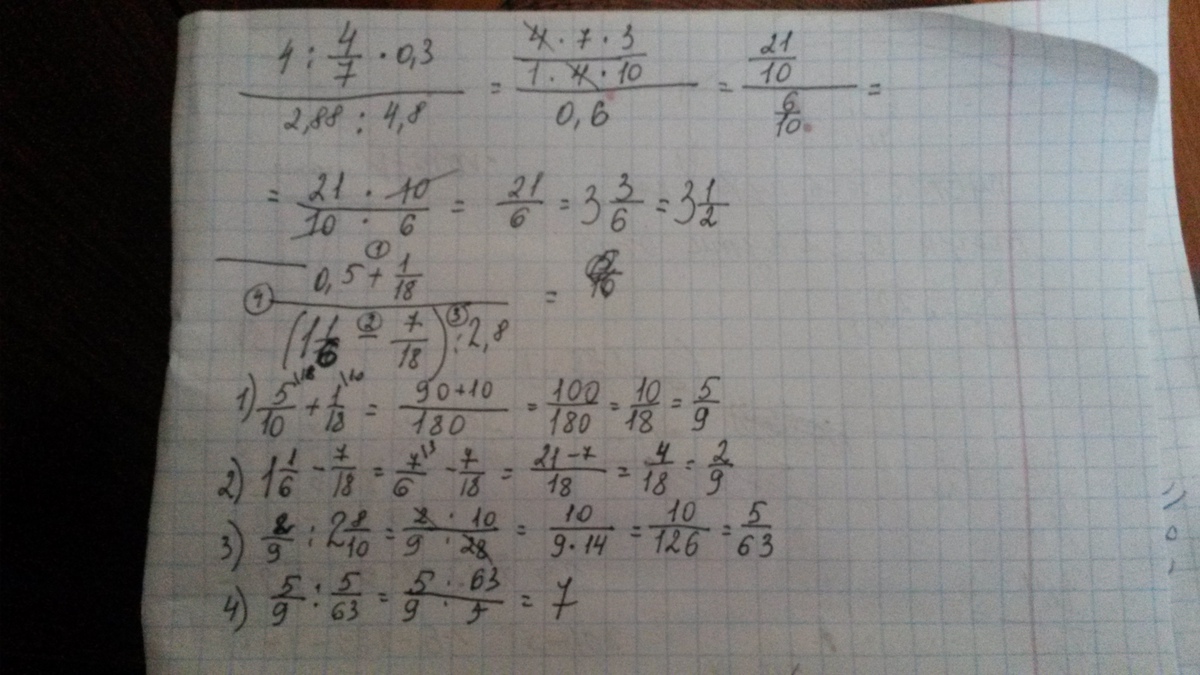 (4 : 4/7 · 0,3)/(2,88 : 4,8) = ((4 · 7 · 3)/(1 · 4 · 10))/0,6 = (21/10)/(6/10) =
= (21 · 10)/(10 · 6) = 21/6 = 3 3/6 = 3 1/2
④ (0,5 +① 1/18)/((1 1/6 −② 7/18) :③ 2,8) =
1) 5/10\18 + 1/18\10 = (90+10)/180 = 100/180 = 10/18 = 5/9
2) 1 1/6 − 7/18 = 7/6\3 − 7/18 = (21−7)/18 = 4/18 = 2/9
3) 2/9 : 2 8/10 = (2 · 10)/(9 · 28) = 10/(9·14) = 10/126 = 5/63
4) 5/9 : 5/63 = (5 · 63)/(9 · 5) = 7